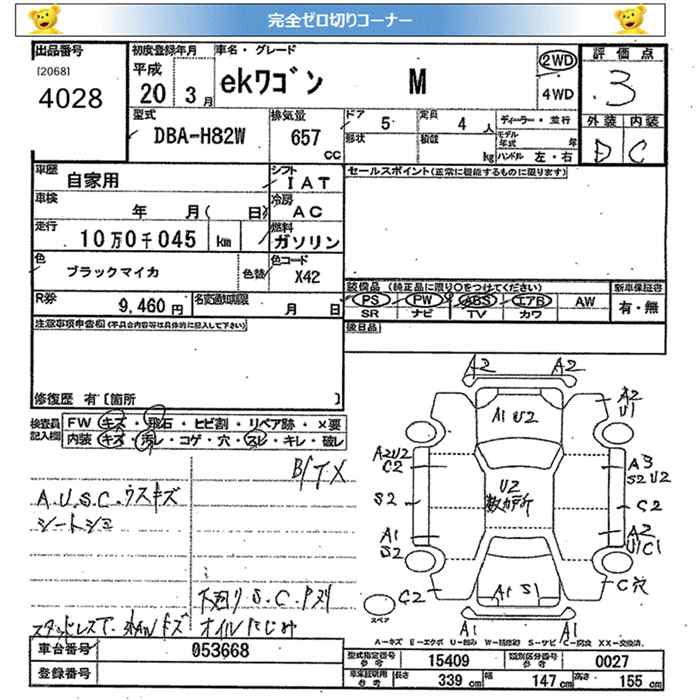 完全ゼロ切りコーナー
出品番号 初度登録年月 車名・グレード 評価点
[2068] 平成 2WD
4028 20 3月 ekワゴン M 4WD 3
型式 排気量 ドア 5 定員 4人 ディーラー・並行 外装 内装
DBA-H82W 657 cc 形状 積載 kg モデル年式 年 D C
ハンドル 左・右
車歴 自家用 シフト IAT セールスポイント(正常に機能するものに限ります)
車検 年 月( 日) 冷房 AC
走行 10万0千045 km 燃料 ガソリン
色 ブラックマイカ 色替 色コード X42
装備品 (純正品に限り○をつけてください) 新車保証書
R券 9,460円 名変通知期限 月 日 PS PW ABS エアB AW 有・無
SR ナビ TV カワ
注意事項申告欄(不具合内容等は具体的に記入して下さい) 後日品
修復歴 有〔箇所 〕
検査員記入欄 FW キズ・飛石・ヒビ割・リペア跡・×要
内装 キズ・汚レ・コゲ・穴・スレ・キレ・破レ
B/TX
A.U.S.C.ウスキズ
シートシミ
下廻り S.C.
オイルにじみ
A2 A2
A1 U2
A2 U1
A2U2 C2
A3 S2U2
S2
U2 数カ所
C2
A1 S2
A2 U1C1
C2
A1 S1
C穴
A1 A1
スペア
A-キズ E-エクボ U-凹み W-補修跡 S-サビ C-腐食 XX-交換済
車台番号 053668 型式指定番号 参考 15409 類別区分番号 参考 0027
登録番号 車庫証明用 参考 長さ 339 cm 幅 147 cm 高さ 155 cm